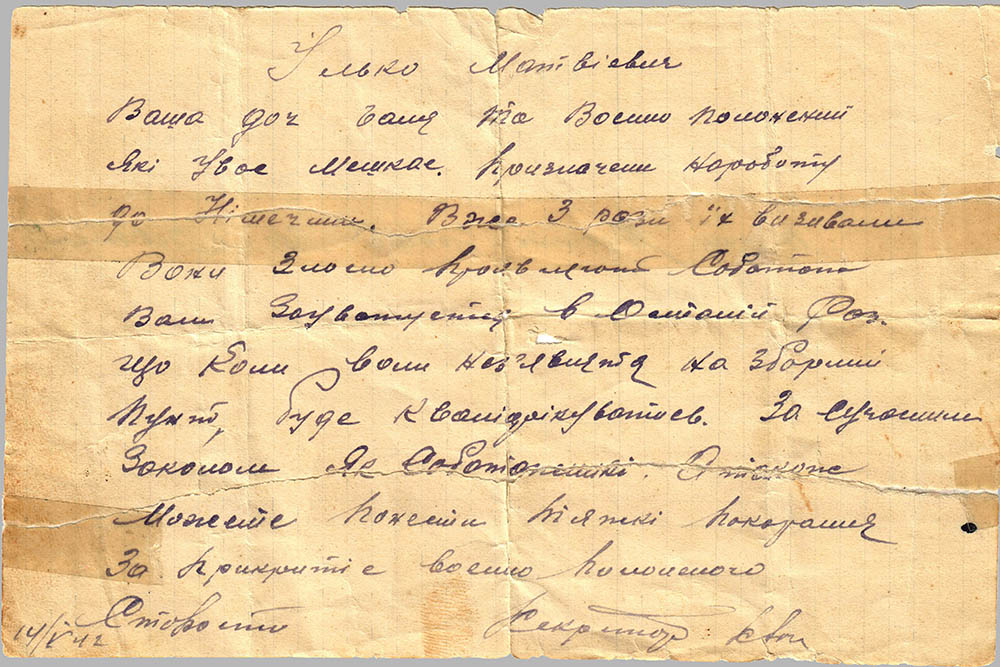 Ілько Матвієвич
Ваша доч Галя та Воєнно полонений
які Увас мешкає. Призначени нароботу
до Німеччини. Вже 3 рази їх визивали
Вони Злосно проявляют Саботаж
Вам в Останій Раз.
що коли вони нез'явится на зборний
Пункт, буде кваліфікуватись. За сучасним
Законом Як Саботажникі. А також
Можете понести тяжкі покарання
За прикритіє воєнно полоненого
Староста Секретар
14/V 42